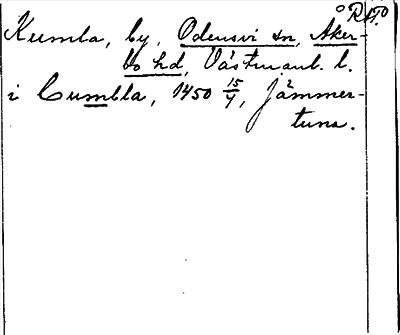 Kumla, by, Odensvi sn, Åker-
bo hd, Västmanl. l.
i Cumbla, 1450 15/4, Jämmer-
tuna.